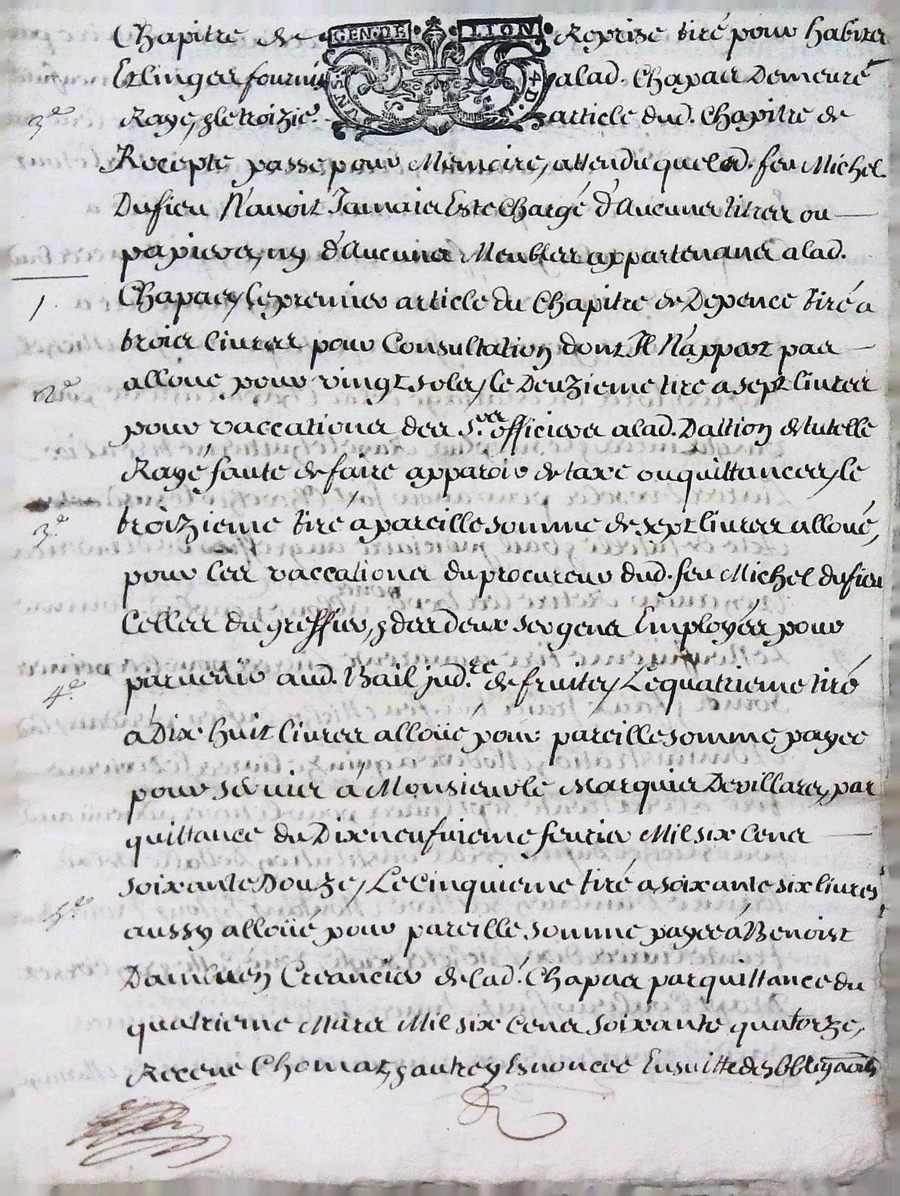 Chapitre de Reprize tiré pour habitz
GEN·DE LION
Et linges fournis a lad. Chapas Demeure
3e Rayé, & le troizie. article dud. Chapitre de
Recepte passe pour Memoire, attendu que led. feu Michel
Dufieu N'avoit Jamais Este Chargé d'Aucuns titres ou
papiers, ny d'Aucuns Meubles appartenans a lad.
1. Chapas, Le premier article du Chapitre de Depence tiré a
trois livres pour Consultation dont Il N'appert pas
2e alloué pour vingt sols, le Deuzieme tiré a sept livres
pour vaccations des Srs officiers a lad. Dattion de tutelle
Rayé faute de faire apparoir de taxe ou quittances, le
3e troizieme tiré a pareille somme de sept livres alloué,
pour les vaccations du procureur dud. feu Michel dufieu
Celles du greffier, & des deux sergens Employés pour
4e parvenir aud. Bail judre de fruits, Le quatrieme tiré
a Dix huit livres alloué pour pareille somme payee
pour servis a Monsieur le Marquis De villars, par
quittance du Dix neufvieme fevrier Mil six cens
5e soixante Douze, Le Cinquieme tiré a soixante six livres
aussy alloué pour pareille somme payee a Benoist
Creancier de lad. Chapas par quittance du
quatrieme Mars Mil six cens soixante quatorze,
Receue Chomat, & autre y Enoncee En suitte des obligaons